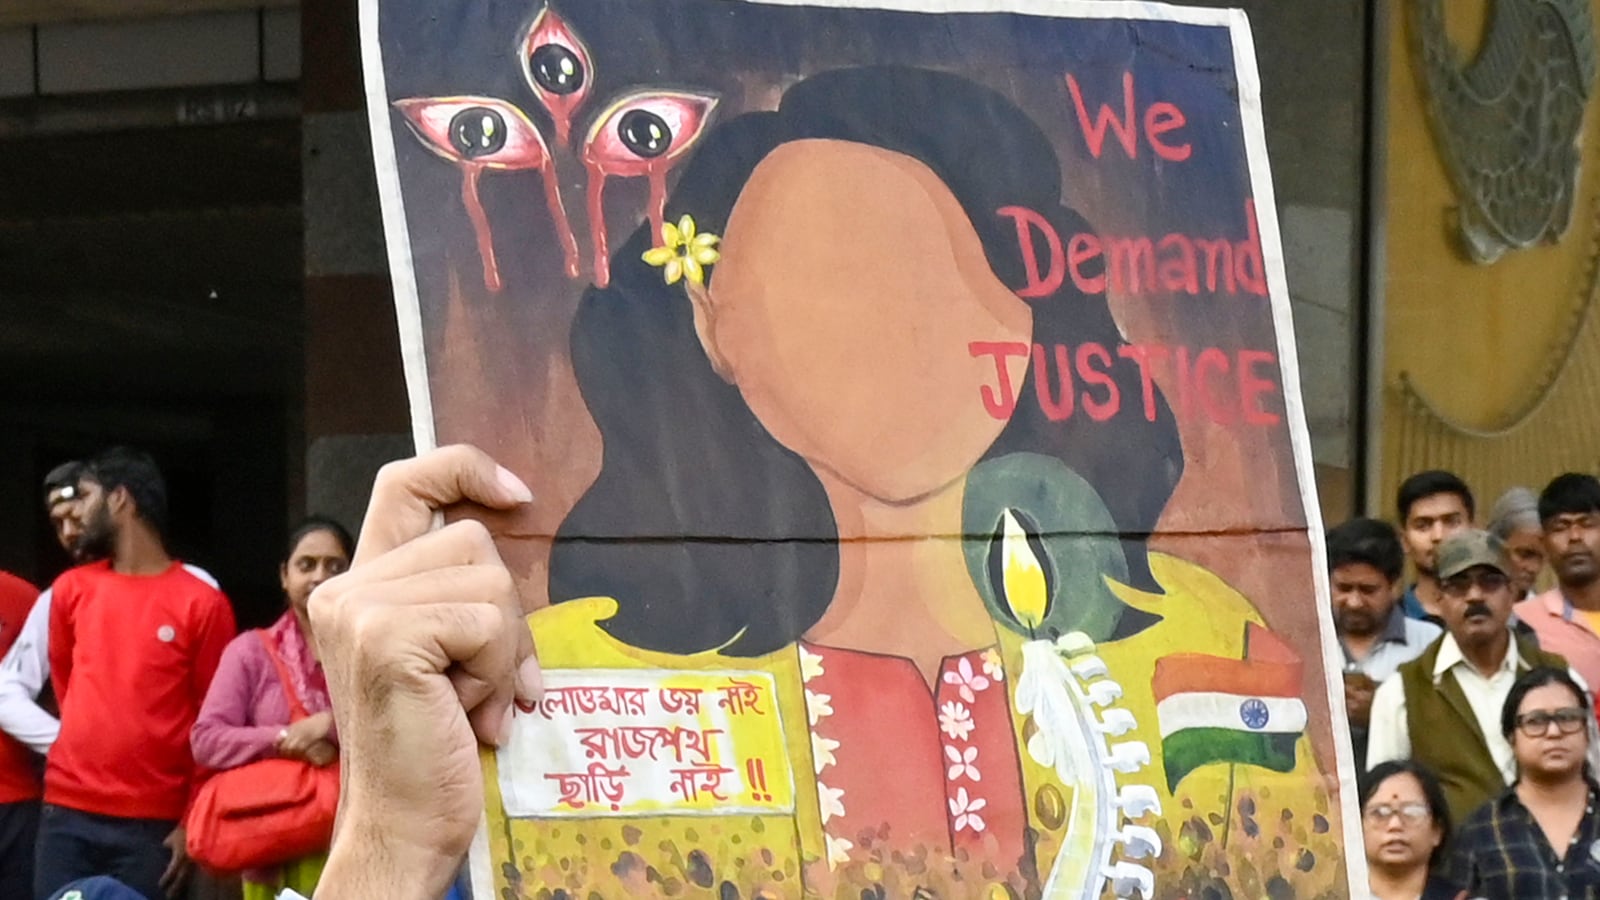 We
Demand
JUSTICE
তিলোত্তমার ভয় নাই
রাজপথ
ছাড়ি নাই !!